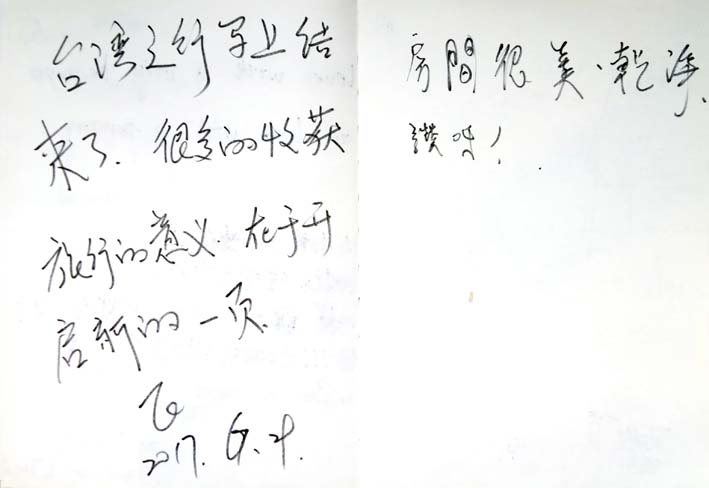 台湾之行马上结
束了. 很多的收获
旅行的意义. 在于开
启新的一页.
飞
2017. 6. 21.
房間很美、乾淨、
讚!